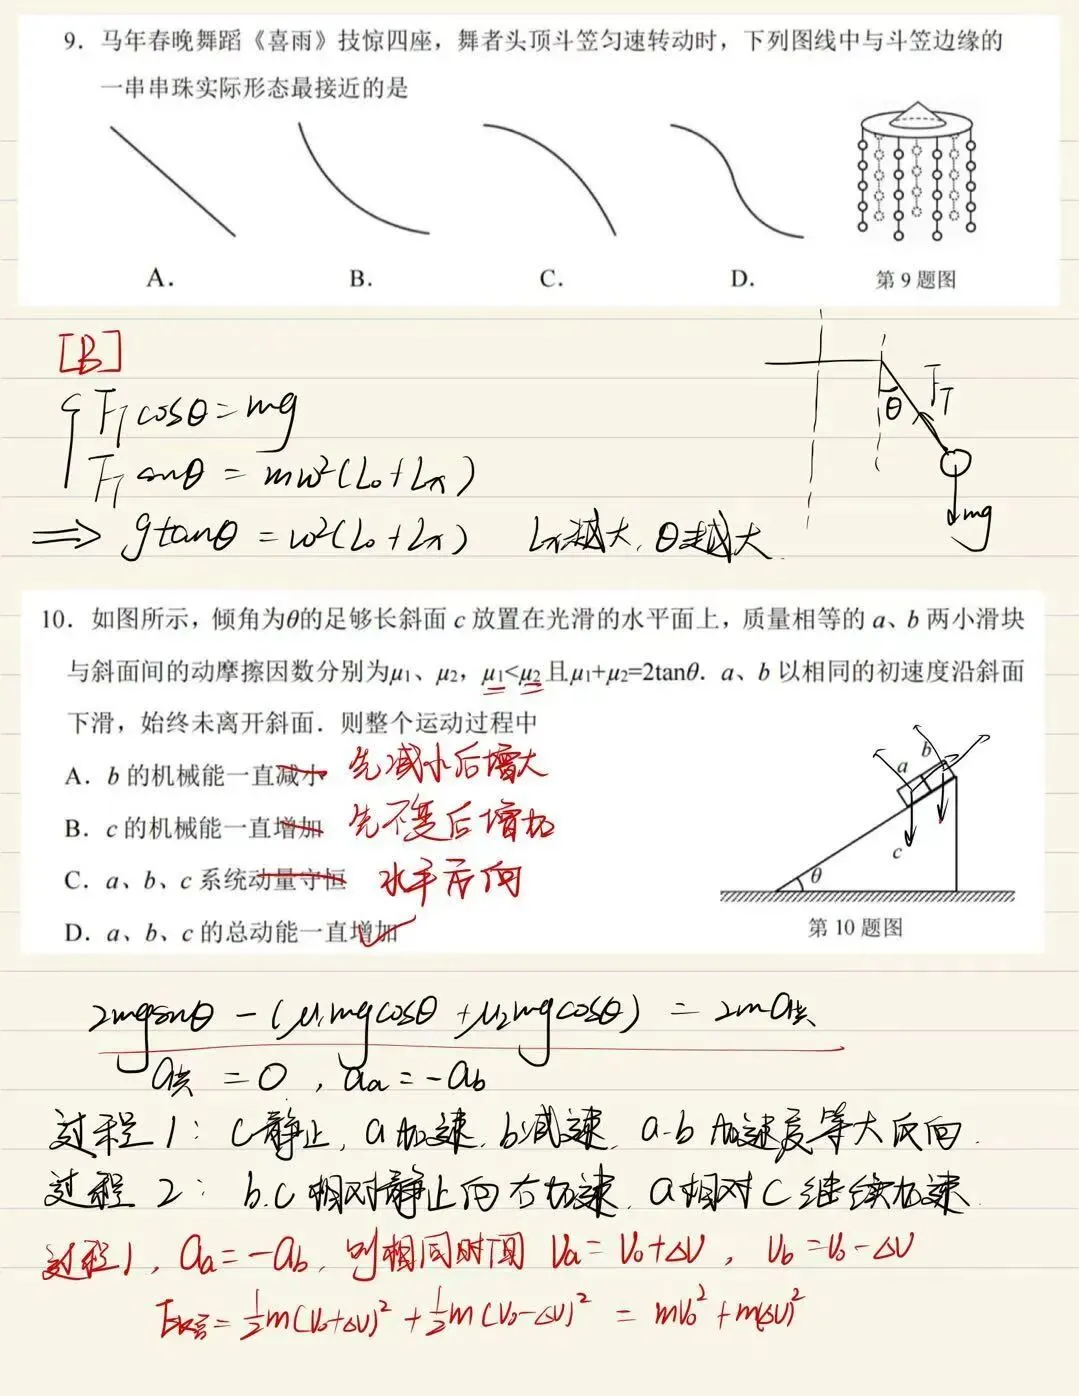 9. 马年春晚舞蹈《喜雨》技惊四座，舞者头顶斗笠匀速转动时，下列图线中与斗笠边缘的
一串串珠实际形态最接近的是
A. B. C. D. 第9题图
[B]
F_T cosθ = mg
F_T sinθ = mω²(L₀+Lₓ)
⇒ g tanθ = ω²(L₀+Lₓ) Lₓ越大, θ越大.
θ F_T
mg
10. 如图所示，倾角为θ的足够长斜面 c 放置在光滑的水平面上，质量相等的 a、b 两小滑块
与斜面间的动摩擦因数分别为μ₁、μ₂，μ₁<μ₂且μ₁+μ₂=2tanθ. a、b 以相同的初速度沿斜面
下滑，始终未离开斜面. 则整个运动过程中
A. b 的机械能一直减小 先减小后增大
B. c 的机械能一直增加 先不变后增加
C. a、b、c 系统动量守恒 水平方向
D. a、b、c 的总动能一直增加
a b
c
θ
第10题图
2mgsinθ - (μ₁mgcosθ + μ₂mgcosθ) = 2ma共
a共 = 0 , aₐ = -a_b
过程1: c静止, a加速, b减速, a·b加速度等大反向.
过程2: b.c相对静止向右加速, a相对c继续加速.
过程1, aₐ = -a_b, 则相同时间 Vₐ = V₀+ΔV , V_b = V₀-ΔV
= ½m(V₀+ΔV)² + ½m(V₀-ΔV)² = mV₀² + m(ΔV)²